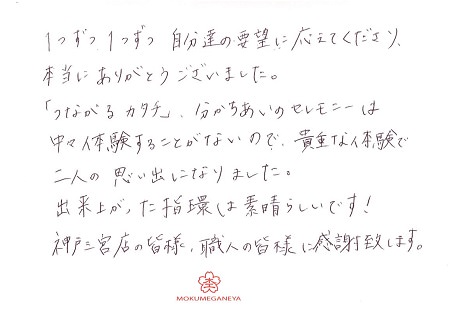 1つずつ 1つずつ 自分達の要望に応えてくださり、
本当にありがとうございました。
「つながるカタチ」、分かちあいのセレモニーは
中々体験することがないので、貴重な体験で
二人の思い出になりました。
出来上がった指環は素晴らしいです!
神戸三宮店の皆様、職人の皆様に感謝致します。
MOKUMEGANEYA